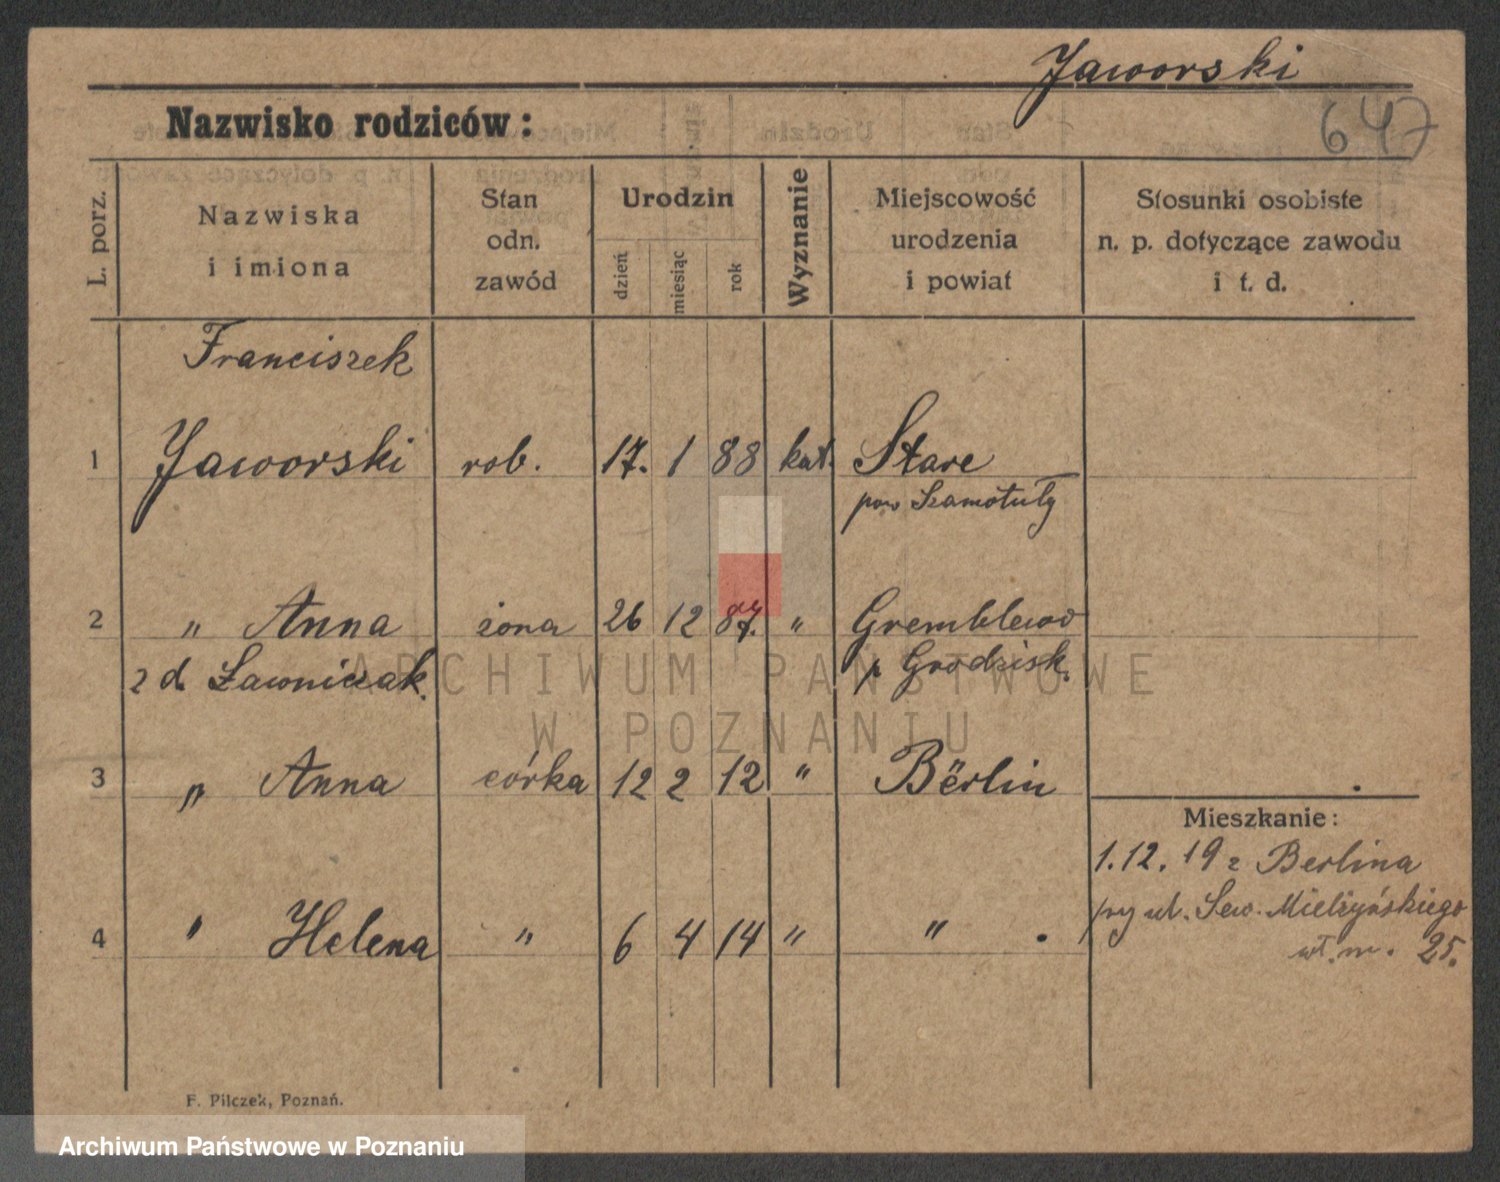 Jaworski
647
Nazwisko rodziców:
L. porz.
Nazwiska
i imiona
Stan
odn.
zawód
Urodzin
dzień
miesiąc
rok
Wyznanie
Miejscowość
urodzenia
i powiat
Stosunki osobiste
n. p. dotyczące zawodu
i t. d.
Franciszek
1 Jaworski rob. 17. 1 88 kat. Stare
pow Szamotuły
2 " Anna żona 26 12 87. " Gremblewo
z d. Ławniczak. p. Grodzisk.
3 " Anna córka 12 2 12 " Berlin
Mieszkanie:
1.12. 19 z Berlina
przy ul. Sew. Mielżyńskiego
4 " Helena " 6 4 14 " "
25.
ARCHIWUM PAŃSTWOWE
W POZNANIU
F. Pilczek, Poznań.
Archiwum Państwowe w Poznaniu